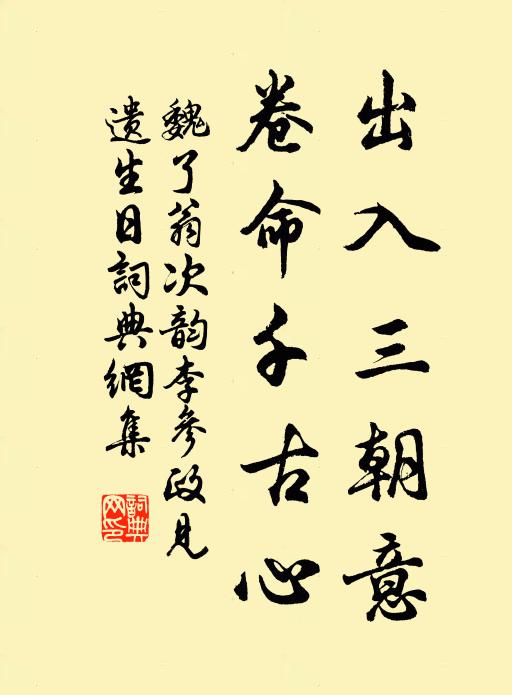 出入三朝意
卷命千古心
魏了翁次韵李參政見
遗生日詞典網集
詞典网印